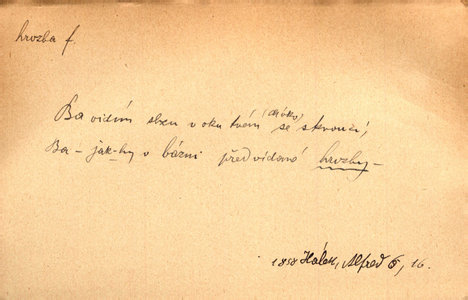 hrozba f.
Ba vidím slzu v oku tvém (děvko) se skvoucí,
Ba – jak-by v bázni předvídané hrozby –
1858 Hálek, Alfred 6, 16.